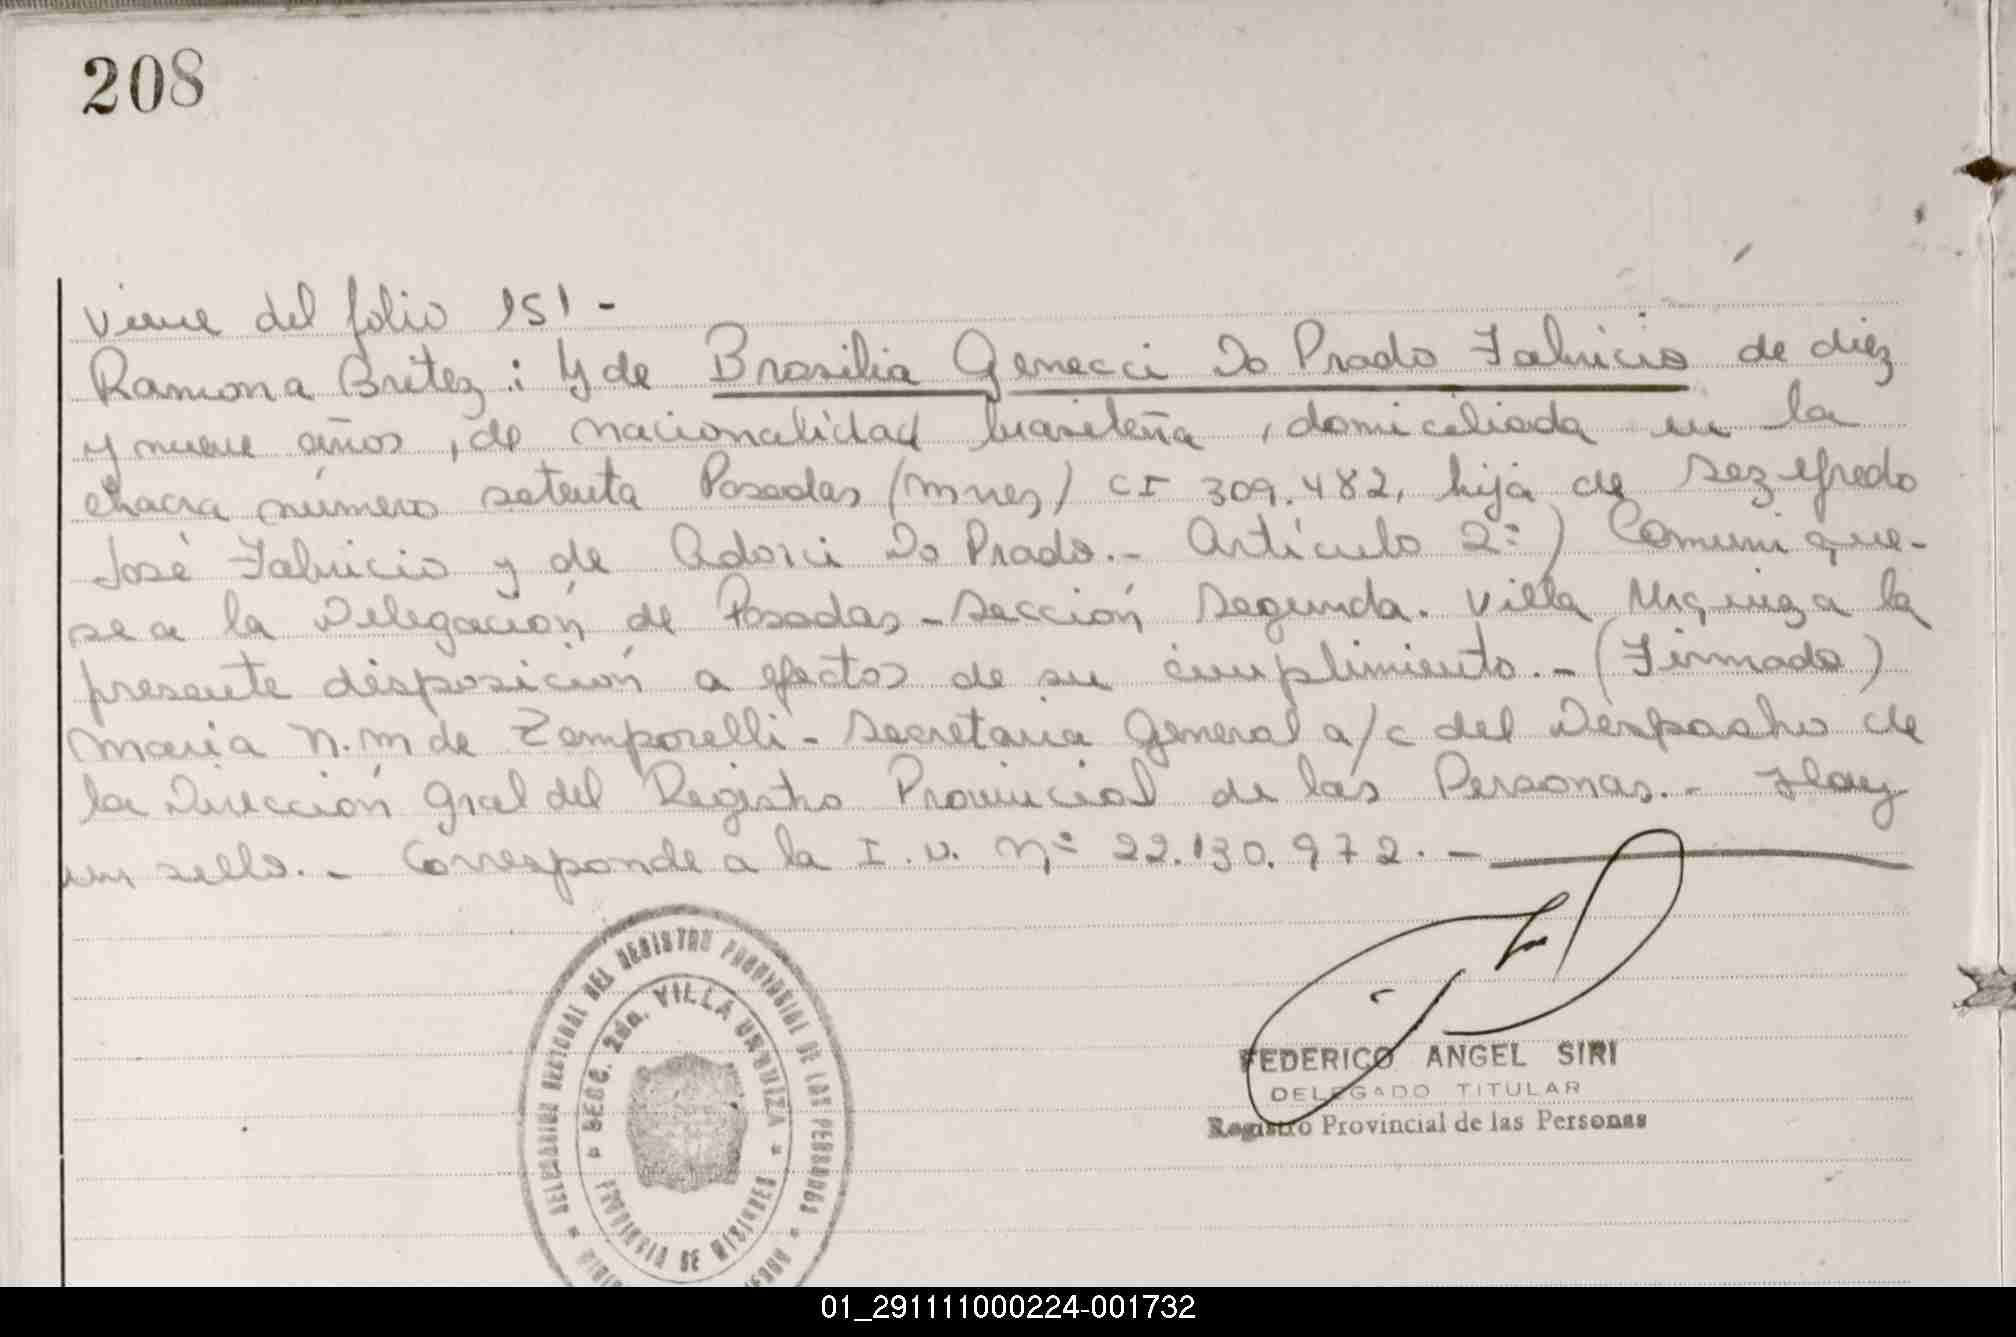 208
viene del folio 151-
Ramona Britez: y de Brasilia Genecci Do Prado Fabricio de diez
y nueve años, de nacionalidad brasileña, domiciliada en la
chacra número setenta Posadas (Mnes) CI 309.482, hija de Sezefredo
José Fabricio y de Adorci Do Prado.- Artículo 2º) Comuníque-
se a la Delegación de Posadas-Sección Segunda. Villa Urquiza la
presente disposición a efectos de su cumplimiento.- (Firmado)
María N. M de Zamporelli- Secretaria General a/c del Despacho de
la Dirección Gral del Registro Provincial de las Personas.- Hay
un sello.- Corresponde a la I.D. Nº 22.130.972.-
DELEGACION REGIONAL DEL REGISTRO PROVINCIAL DE LAS PERSONAS
SECC. 2da. VILLA URQUIZA
PROVINCIA DE MISIONES
FEDERICO ANGEL SIRI
DELEGADO TITULAR
Registro Provincial de las Personas
01_291111000224-001732